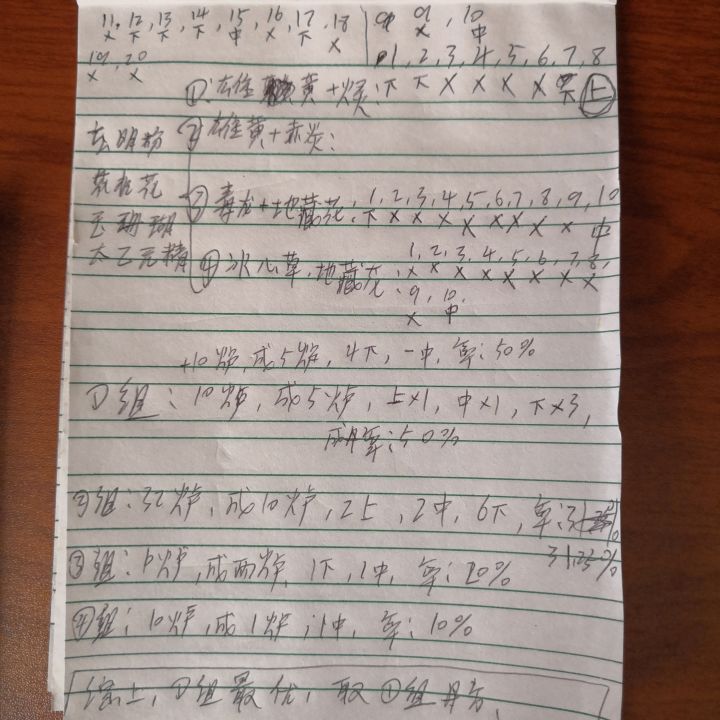 11, 12, 13, 14, 15, 16, 17, 18
x 下 下 下 中 x 下 x
9, 10
x 中
19, 20
x x
1, 2, 3, 4, 5, 6, 7, 8
①: 雄黄+ : 下 下 x x x x 下 上
② 雄黄+赤炎:
玄明粉
花
玉珊瑚
太乙元精
③ 毒龙+地藏花: 1, 2, 3, 4, 5, 6, 7, 8, 9, 10
下 x x x x x x x x 中
④ 冰心草, 地藏花: 1, 2, 3, 4, 5, 6, 7, 8,
x x x x x x x x
9, 10
x 中
+10炉, 成5炉, 4下, 一中, 率: 50%
①组: 10炉, 成5炉, 上x1, 中x1, 下x3,
成丹率: 50%
②组: 32炉, 成10炉, 2上, 2中, 6下, 率:
31.25%
③组: 炉, 成两炉, 1下, 1中, 率: 20%
④组: 10炉, 成1炉; 1中, 率: 10%
综上, ①组最优, 取①组丹方,